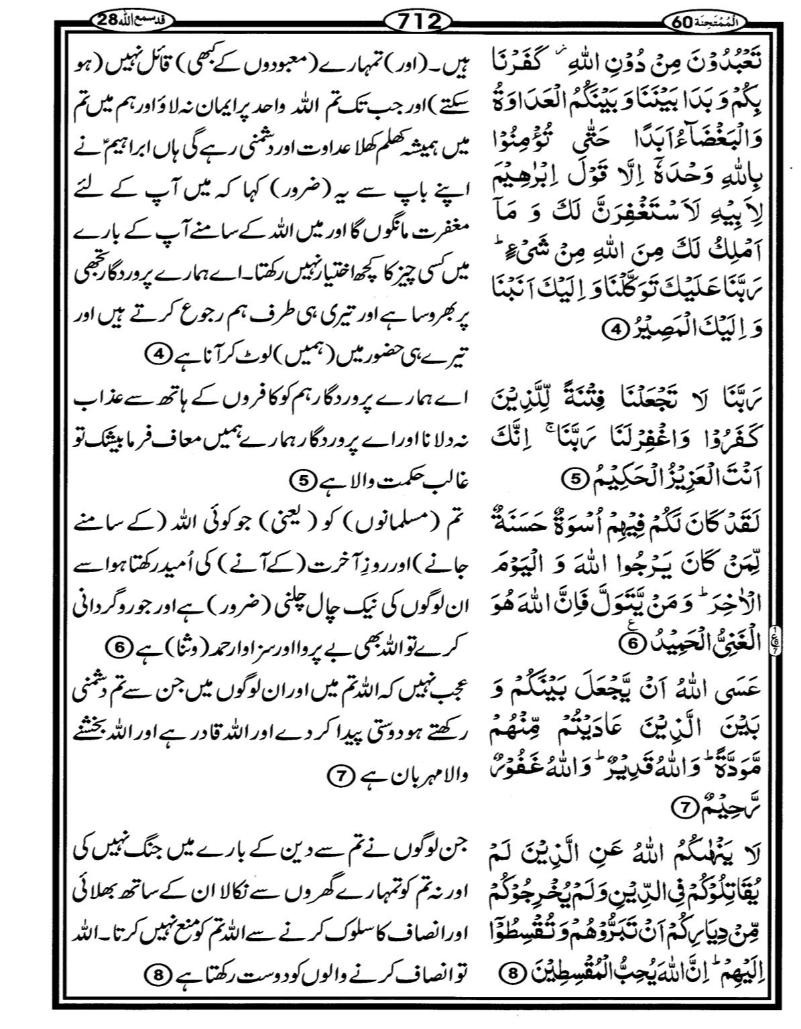 الْمُمْتَحِنَة 60
712
قد سمع اللہ 28
تَعْبُدُوْنَ مِنْ دُوْنِ اللّٰهِ ۡ كَفَرْنَا
بِكُمْ وَ بَدَا بَيْنَنَا وَ بَيْنَكُمُ الْعَدَاوَةُ
وَالْبَغْضَآءُ اَبَدًا حَتّٰى تُؤْمِنُوْا
بِاللّٰهِ وَحْدَهٗٓ اِلَّا قَوْلَ اِبْرٰهِيْمَ
لِاَبِيْهِ لَاَسْتَغْفِرَنَّ لَكَ وَ مَاۤ
اَمْلِكُ لَكَ مِنَ اللّٰهِ مِنْ شَىْءٍ ؕ
رَبَّنَا عَلَيْكَ تَوَكَّلْنَا وَ اِلَيْكَ اَنَبْنَا
وَ اِلَيْكَ الْمَصِيْرُ 4
رَبَّنَا لَا تَجْعَلْنَا فِتْنَةً لِّلَّذِيْنَ
كَفَرُوْا وَ اغْفِرْ لَنَا رَبَّنَا ۚ اِنَّكَ
اَنْتَ الْعَزِيْزُ الْحَكِيْمُ 5
لَقَدْ كَانَ لَكُمْ فِيْهِمْ اُسْوَةٌ حَسَنَةٌ
لِّمَنْ كَانَ يَرْجُوا اللّٰهَ وَ الْيَوْمَ
الْاٰخِرَ ؕ وَ مَنْ يَّتَوَلَّ فَاِنَّ اللّٰهَ هُوَ
الْغَنِىُّ الْحَمِيْدُ 6 ع
عَسَى اللّٰهُ اَنْ يَّجْعَلَ بَيْنَكُمْ وَ
بَيْنَ الَّذِيْنَ عَادَيْتُمْ مِّنْهُمْ
مَّوَدَّةً ؕ وَ اللّٰهُ قَدِيْرٌ ؕ وَ اللّٰهُ غَفُوْرٌ
رَّحِيْمٌ 7
لَا يَنْهٰىكُمُ اللّٰهُ عَنِ الَّذِيْنَ لَمْ
يُقَاتِلُوْكُمْ فِى الدِّيْنِ وَ لَمْ يُخْرِجُوْكُمْ
مِّنْ دِيَارِكُمْ اَنْ تَبَرُّوْهُمْ وَ تُقْسِطُوْٓا
اِلَيْهِمْ ؕ اِنَّ اللّٰهَ يُحِبُّ الْمُقْسِطِيْنَ 8
ہیں۔ (اور) تمہارے (معبودوں کے کبھی) قائل نہیں (ہو
سکتے) اور جب تک تم اللہ واحد پر ایمان نہ لاؤ اور ہم میں تم
میں ہمیشہ کھلم کھلا عداوت اور دشمنی رہے گی ہاں ابراہیمؑ نے
اپنے باپ سے یہ (ضرور) کہا کہ میں آپ کے لئے
مغفرت مانگوں گا اور میں اللہ کے سامنے آپ کے بارے
میں کسی چیز کا کچھ اختیار نہیں رکھتا۔ اے ہمارے پروردگار تجھی
پر بھروسا ہے اور تیری ہی طرف ہم رجوع کرتے ہیں اور
تیرے ہی حضور میں (ہمیں) لوٹ کر آنا ہے 4
اے ہمارے پروردگار ہم کو کافروں کے ہاتھ سے عذاب
نہ دلانا اور اے پروردگار ہمارے ہمیں معاف فرما بیشک تو
غالب حکمت والا ہے 5
تم (مسلمانوں) کو (یعنی) جو کوئی اللہ (کے سامنے
جانے) اور روزِ آخرت (کے آنے) کی اُمید رکھتا ہو اسے
ان لوگوں کی نیک چال چلنی (ضرور) ہے اور جو روگردانی
کرے تو اللہ بھی بے پروا اور سزاوارِ حمد (وثنا) ہے 6
عجب نہیں کہ اللہ تم میں اور ان لوگوں میں جن سے تم دشمنی
رکھتے ہو دوستی پیدا کر دے اور اللہ قادر ہے اور اللہ بخشنے
والا مہربان ہے 7
جن لوگوں نے تم سے دین کے بارے میں جنگ نہیں کی
اور نہ تم کو تمہارے گھروں سے نکالا ان کے ساتھ بھلائی
اور انصاف کا سلوک کرنے سے اللہ تم کو منع نہیں کرتا۔ اللہ
تو انصاف کرنے والوں کو دوست رکھتا ہے 8